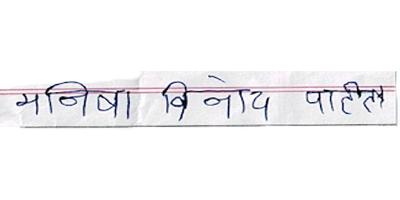 मनिषा विनोद पाटील